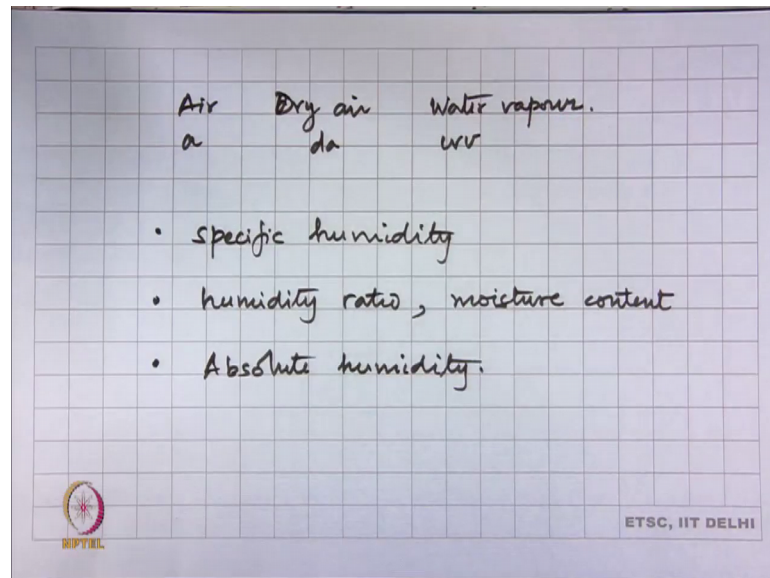 Air Dry air Water vapour.
a da wv
• specific humidity
• humidity ratio, moisture content
• Absolute humidity.
NPTEL
ETSC, IIT DELHI